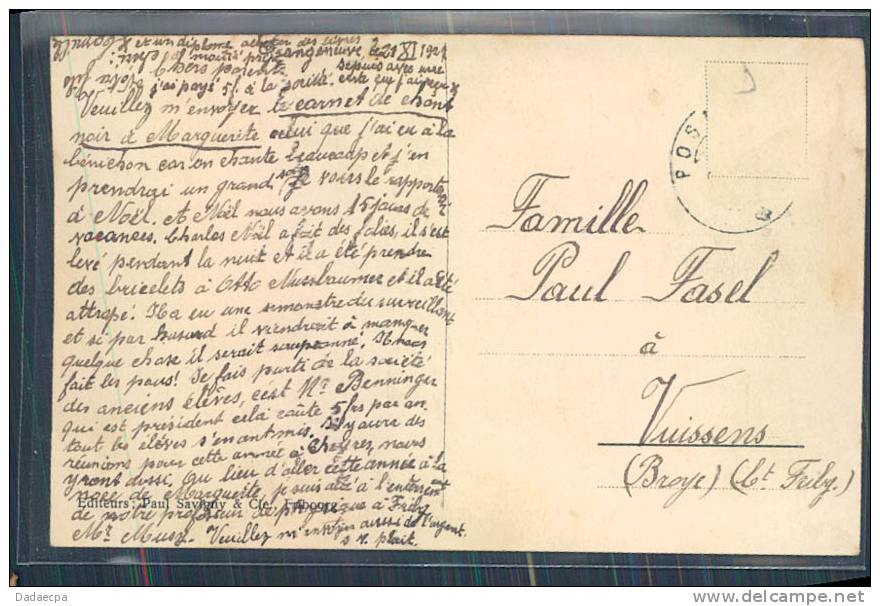 et un diplome
Grangeneuve le 21 XI 1921
Chers parents
j'ai payé 5f. à la société.
Veuillez m'envoyer le carnet de chant
noir à Marguerite celui que j'ai eu à la
bénichon car on chante beaucoup et j'en
prendrai un grand soin je vous le rapporterai
à Noël. A Noël nous avons 15 jours de
vacances. Charles Noël a fait des folies, il s'est
levé pendant la nuit et il a été prendre
des bricelets à Otto Nussbaumer et il a été
attrapé. Il a eu une remontre du surveillant
et si par hasard il viendrait à manquer
quelque chose il serait soupconné. Il nous
fait les pous! Je fais parti de la société
des anciens élèves, c'est Mr Benninger
qui est président cela coûte 5 frs par an.
tout les élèves s'en ont mis. Il y aura des
réunions pour cette année à Cheyres, nous
yront aussi. Au lieu d'aller cette année à la
noce de Marguerite, je suis allé à l'enterrement
de notre professeur de physique à Frib.
Mr Musy. Veuillez m'envoyer aussi de l'argent.
s. v. plait.
Editeurs: Paul Savigny & Cie, Fribourg
POS
Famille
Paul Fasel
à
Vuissens
(Broye) (Ct. Frib.)
Dadaecpa
delcampe.net